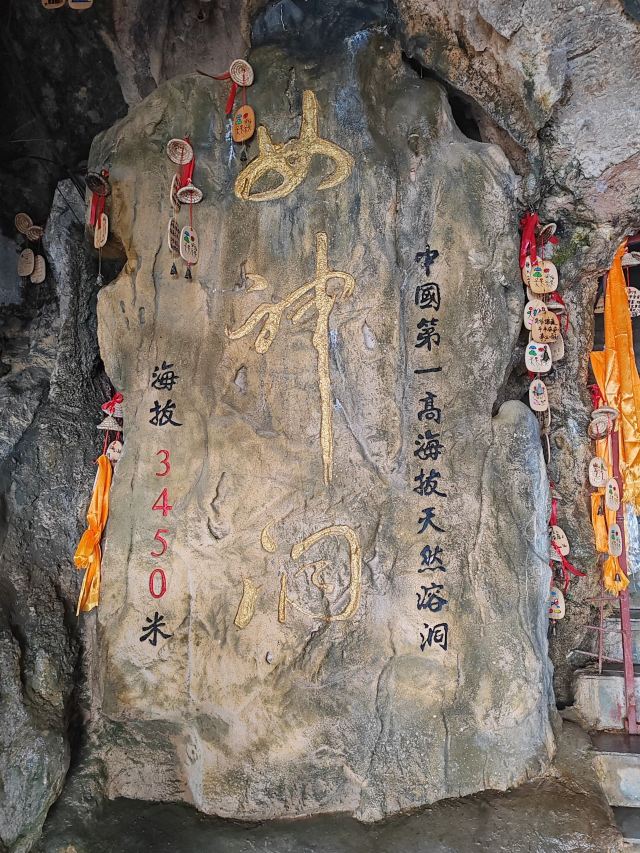 中國第一高海拔天然溶洞
女神洞
海拔3450米